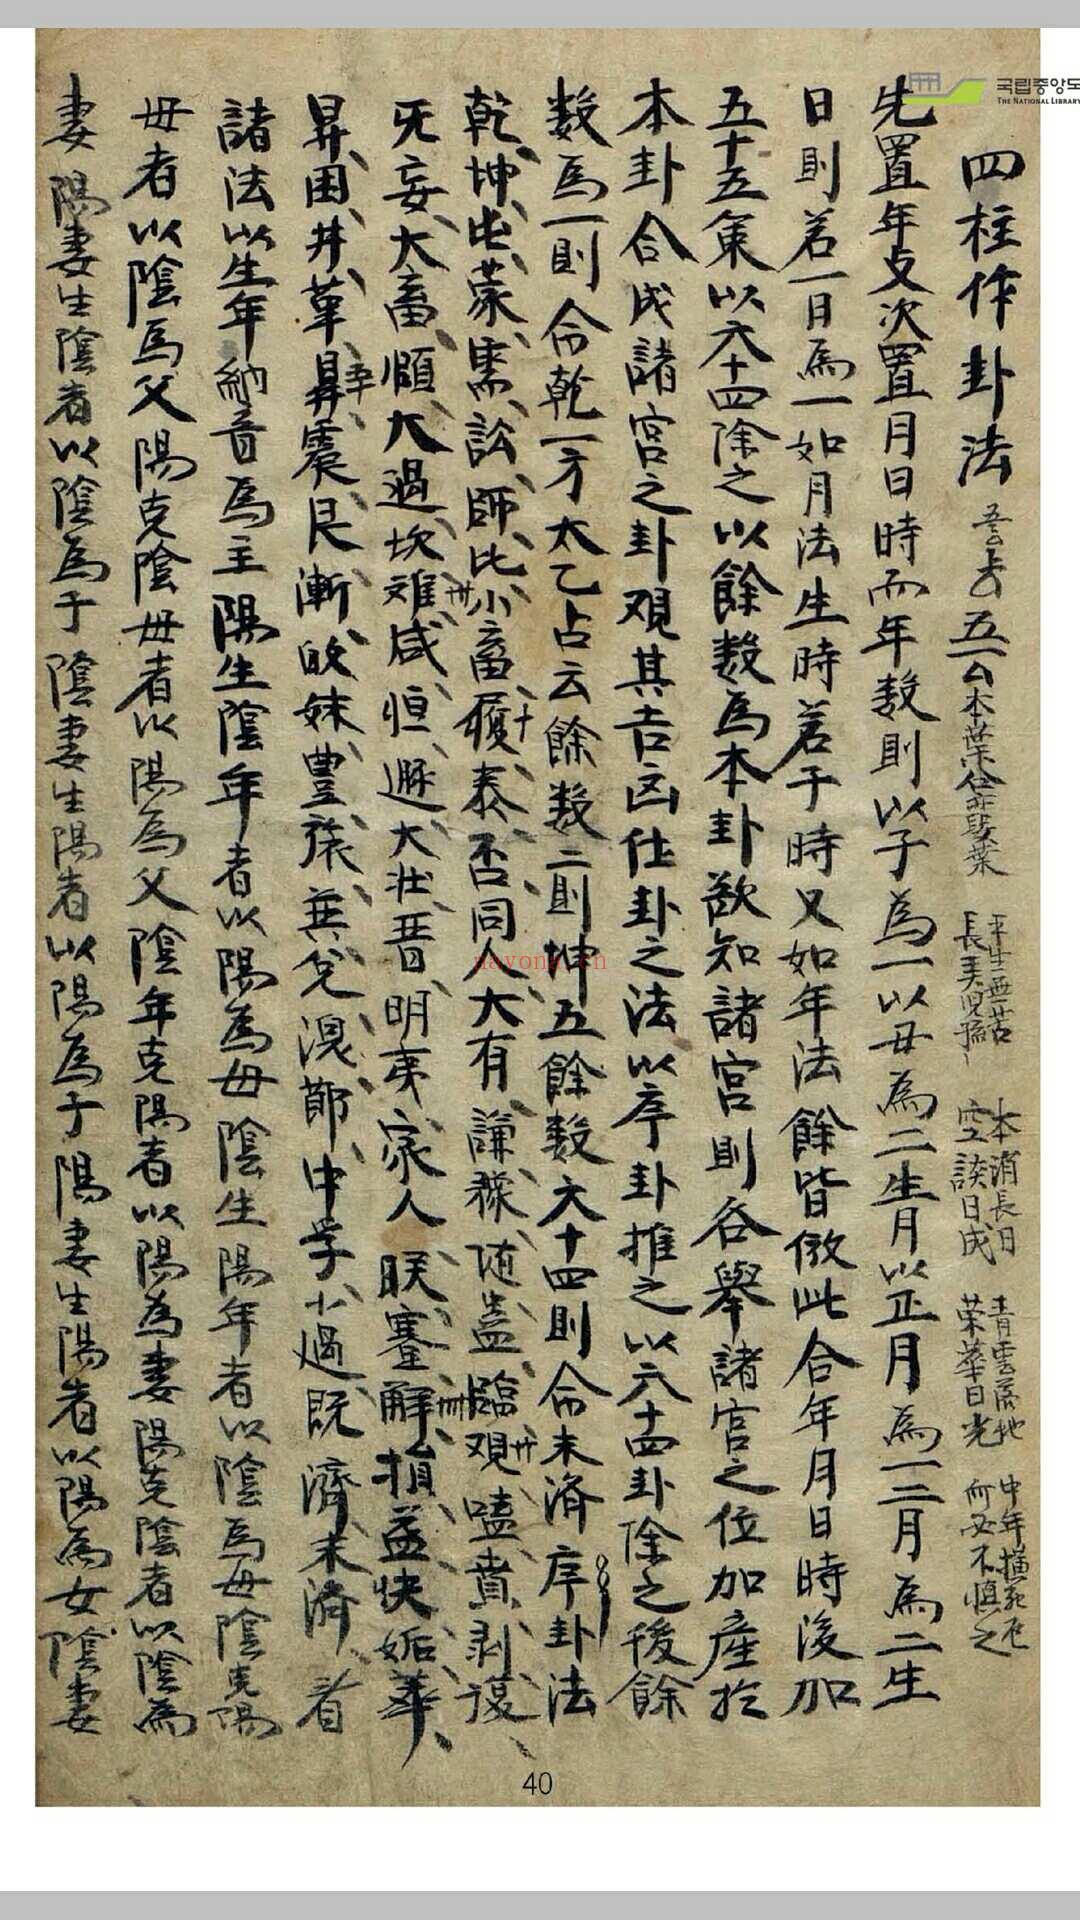 국립중앙도
THE NATIONAL LIBRARY
四柱作卦法
五六本葉合
平生無苦
長美兒孫
本消長日
空談日成
青雲落地
榮華日光
中年横死厄
而必不慎之
先置年攴次置月日時而年数則以子為一以丑為二生月以正月為一二月為二生
日則若一日為一如月法生時若子時又如年法餘皆倣此合年月日時後加
五十五策以六十四除之以餘数為本卦欲知諸宮則各擧諸宮之位加産於
本卦合成諸宮之卦观其吉凶仕卦之法以序卦推之以六十四卦除之後餘
数為一則命乾一方太乙占云餘数二則坤五餘数六十四則命未済序卦法
乾坤屯蒙需訟師比小畜履十泰否同人大有謙豫随蠱臨观廿噬賁剥復
旡妄大畜頤大過坎难卅咸恒遯大壮晋明夷家人睽蹇解卌損益快姤萃
昇困井革鼎五十震艮漸歸妹豊旅巽兌渙節中孚小過既濟未済看
諸法以生年納音為主陽生陰年者以陽為母陰生陽年者以陰為母陰克陽
母者以陰為父陽克陰母者以陽為父陰年克陽者以陽為妻陽克陰者以陰為
妻陽妻生陰者以陰為子陰妻生陽者以陽為子陽妻生陽者以陽為女陰妻
nayona.cn
40